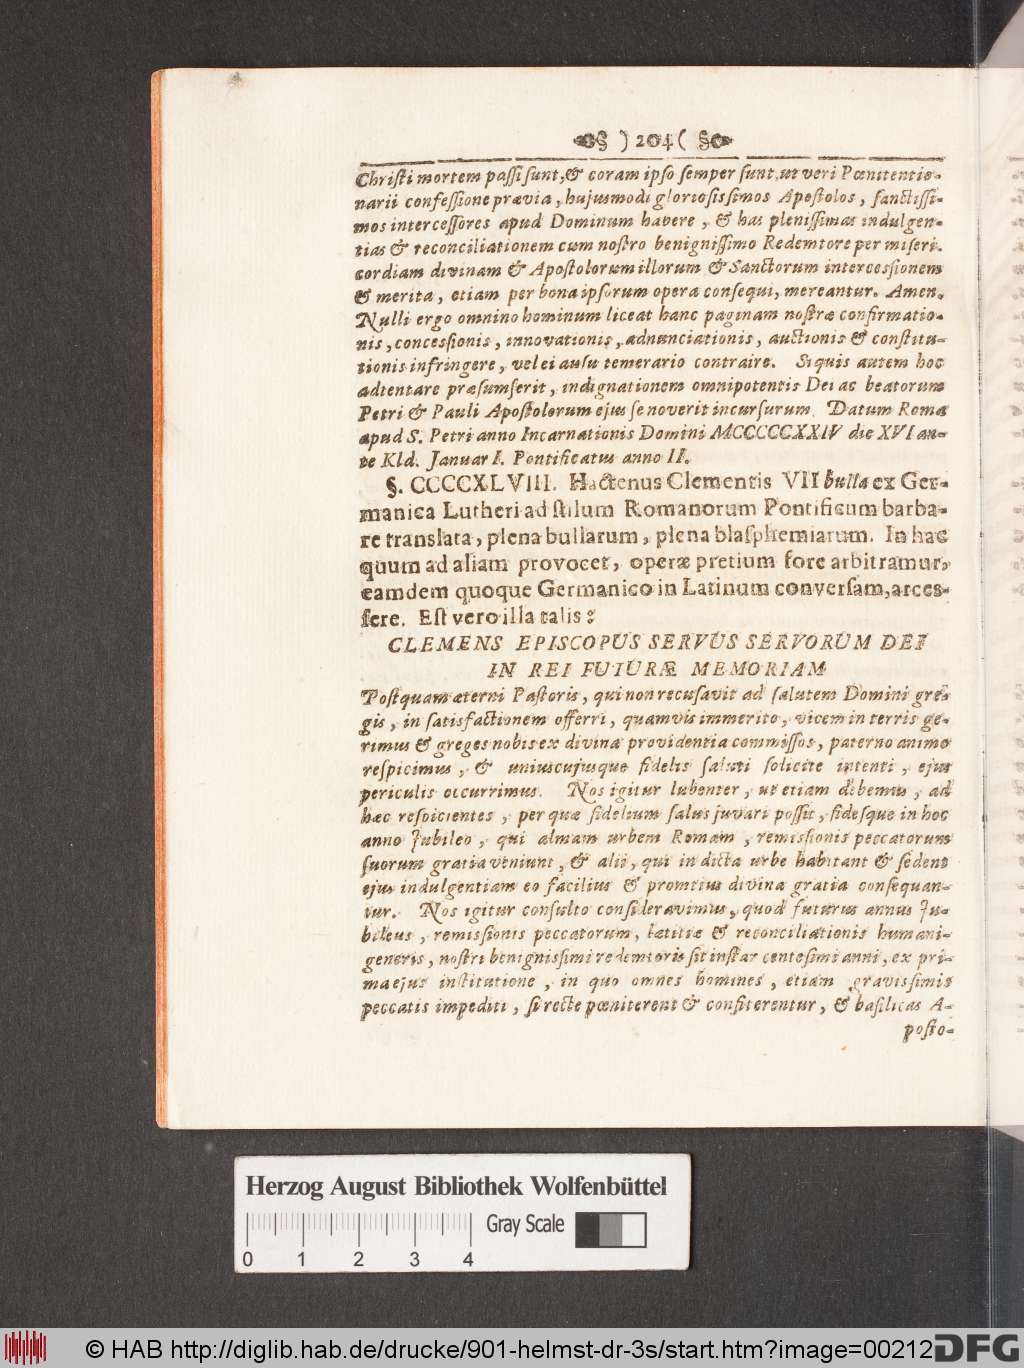 § ) 204 ( §
Christi mortem passi sunt, & coram ipso semper sunt, ut veri Pœnitentio-
narii confessione prævia, hujusmodi gloriosissimos Apostolos, sanctissi-
mos intercessores apud Dominum habere, & has plenissimas indulgen-
tias & reconciliationem cum nostro benignissimo Redemtore per miseri-
cordiam divinam & Apostolorum illorum & Sanctorum intercessionem
& merita, etiam per bona ipsorum opera consequi, mereantur. Amen.
Nulli ergo omnino hominum liceat hanc paginam nostræ confirmatio-
nis, concessionis, innovationis, adnunciationis, auctionis & constitu-
tionis infringere, vel ei ausu temerario contraire. Si quis autem hoc
adtentare præsumserit, indignationem omnipotentis Dei ac beatorum
Petri & Pauli Apostolorum ejus se noverit incursurum. Datum Romæ
apud S. Petri anno Incarnationis Domini MCCCCCXXIV die XVI an-
te Kld. Januar I. Pontificatus anno II.
§. CCCCXLVIII. Hactenus Clementis VII bulla ex Ger-
manica Lutheri ad stilum Romanorum Pontificum barba-
re translata, plena bullarum, plena blasphemiarum. In hac
quum ad aliam provocet, operæ pretium fore arbitramur,
eamdem quoque Germanico in Latinum conversam, arces-
sere. Est vero illa talis:
CLEMENS EPISCOPUS SERVUS SERVORUM DEI
IN REI FUTURÆ MEMORIAM
Postquam æterni Pastoris, qui non recusavit ad salutem Domini gre-
gis, in satisfactionem offerri, quamvis immerito, vicem in terris ge-
rimus & greges nobis ex divina providentia commissos, paterno animo
respicimus, & uniuscujusque fidelis saluti solicite intenti, ejus
periculis occurrimus. Nos igitur lubenter, ut etiam debemus, ad
hæc respicientes, per quæ fidelium salus juvari possit, fidesque in hoc
anno Jubileo, qui almam urbem Romam, remissionis peccatorum
suorum gratia veniunt, & alii, qui in dicta urbe habitant & sedent
ejus indulgentiam eo facilius & promtius divina gratia consequan-
tur. Nos igitur consulto consideravimus, quod futurus annus Ju-
bileus, remissionis peccatorum, lætitiæ & reconciliationis humani-
generis, nostri benignissimi redemtoris sit instar centesimi anni, ex pri-
ma ejus institutione, in quo omnes homines, etiam gravissimis
peccatis impediti, si recte pœniterent & confiterentur, & basilicas A-
posto-
Herzog August Bibliothek Wolfenbüttel
Gray Scale
0 1 2 3 4
© HAB http://diglib.hab.de/drucke/901-helmst-dr-3s/start.htm?image=00212
DFG